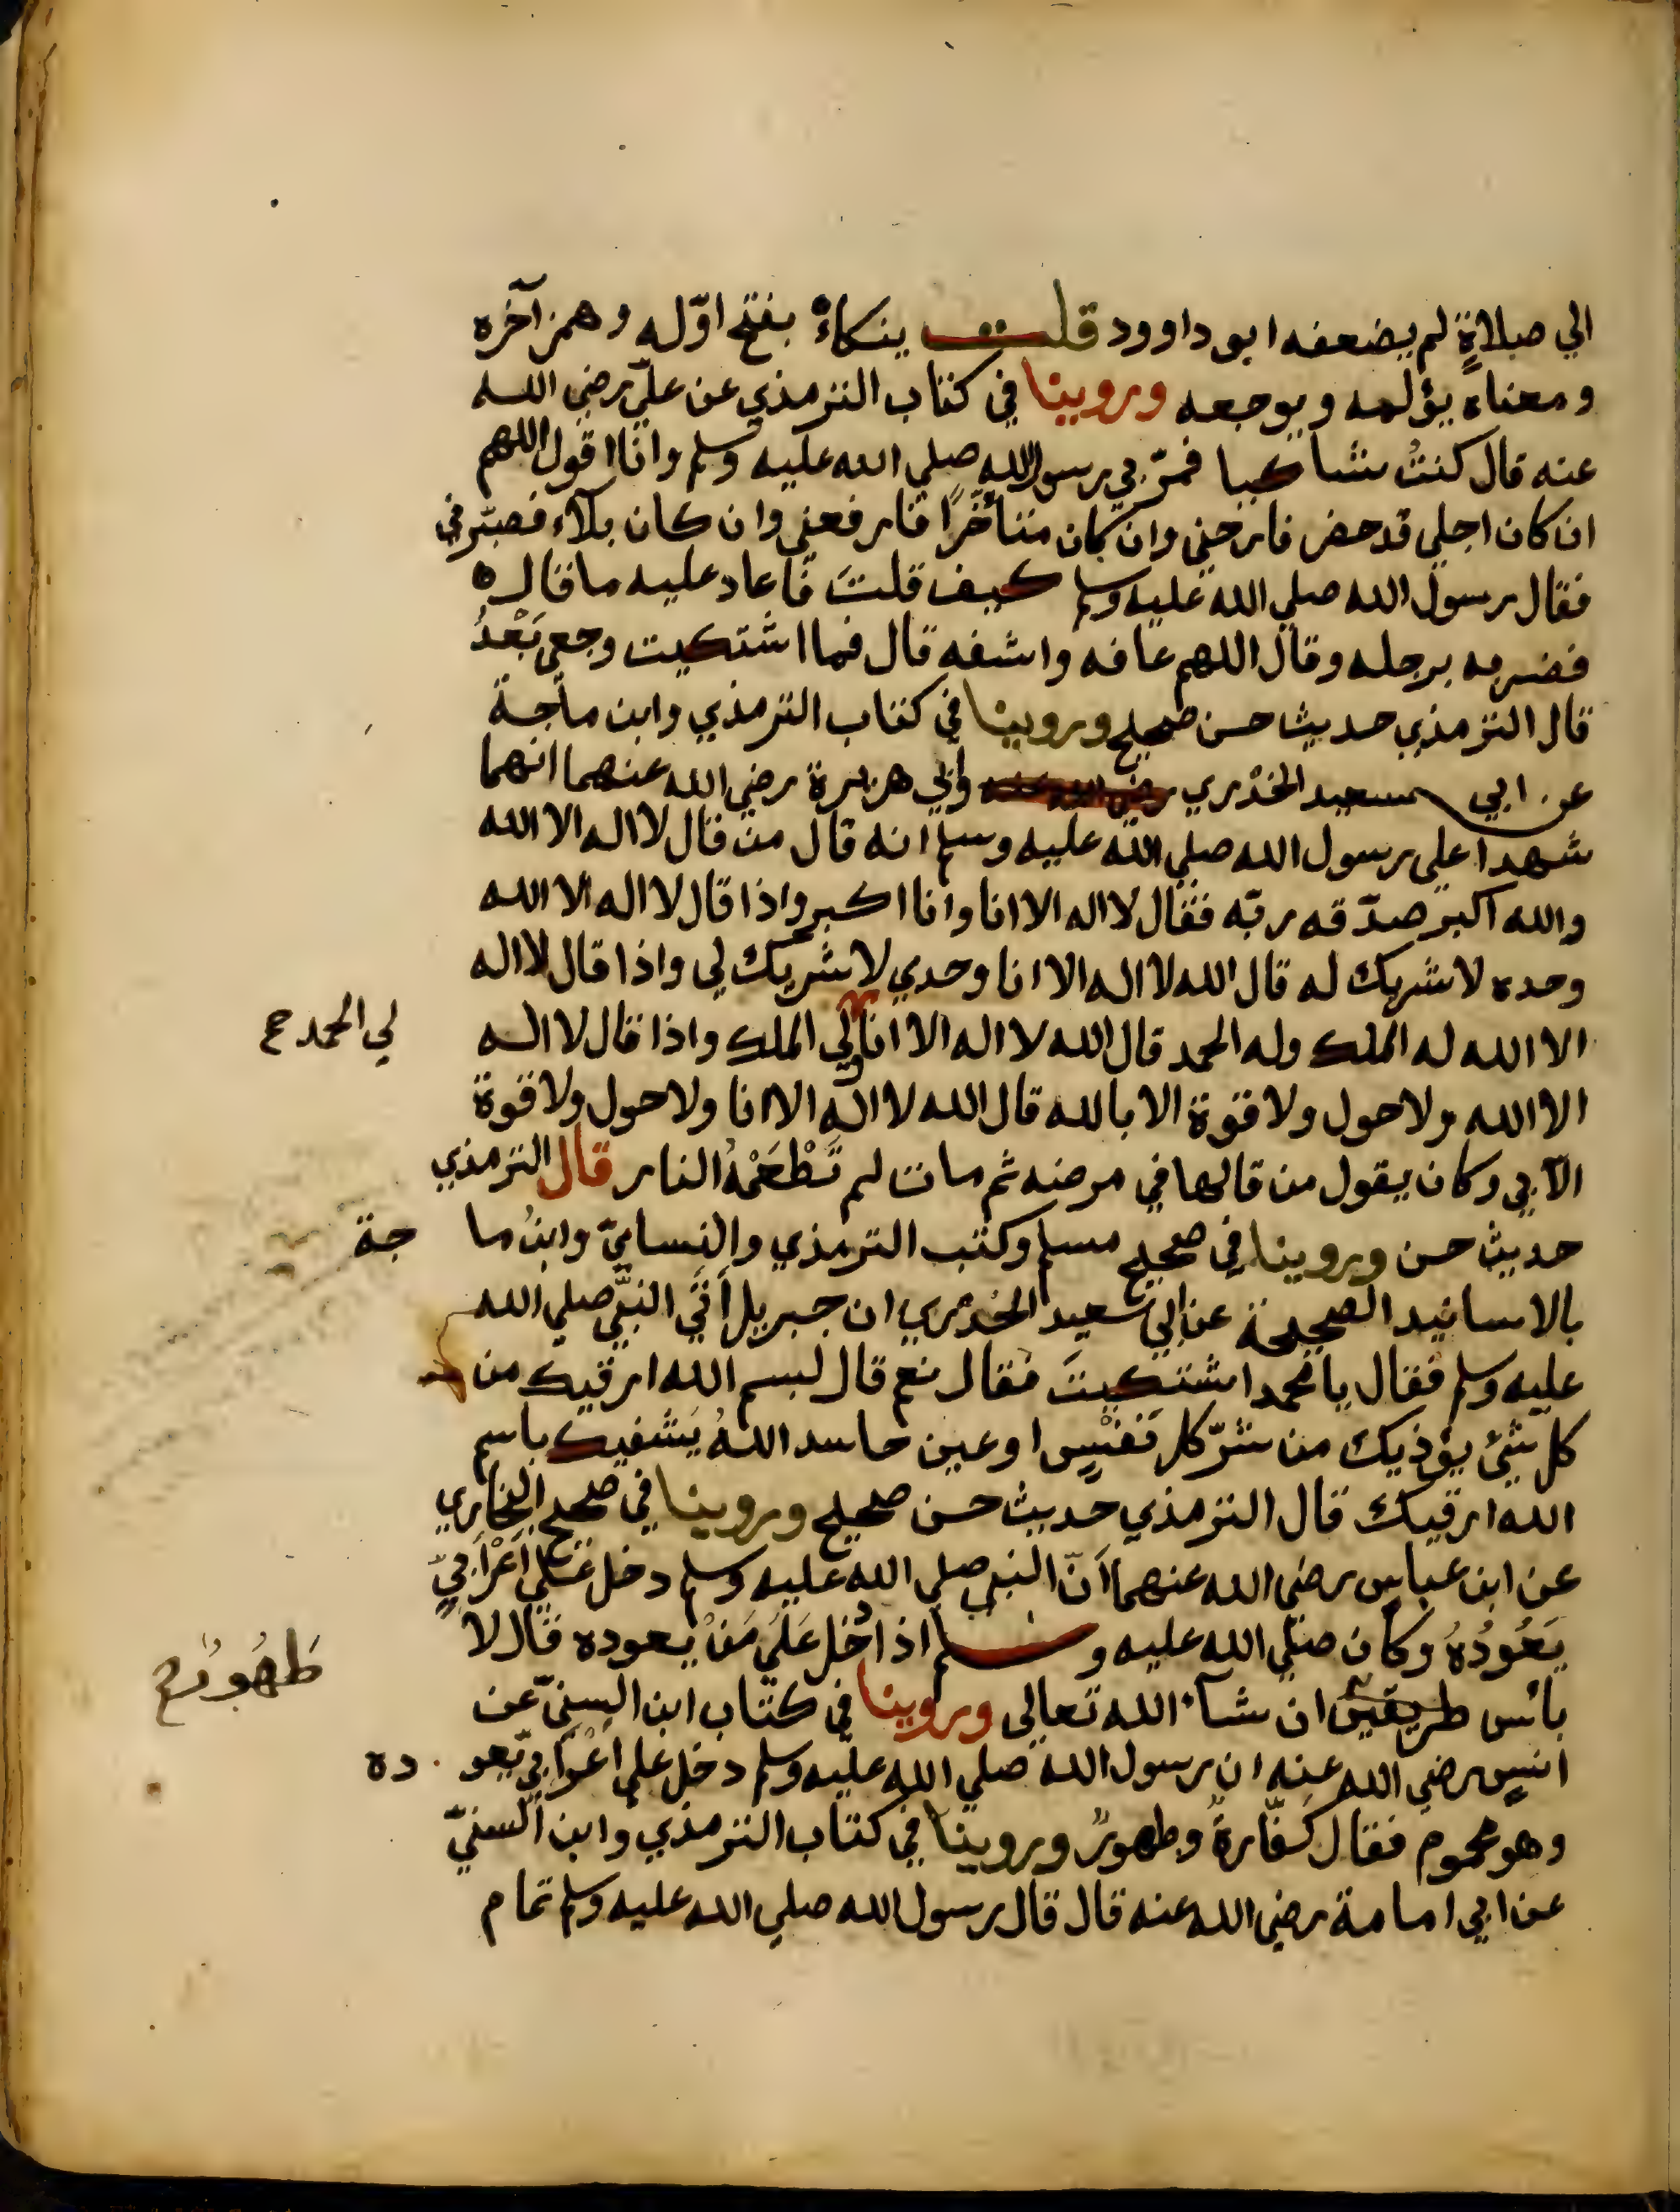 الي صلاةٍ لم يضعفه ابو داوود قلت ينكاءُ بفتح اوّله وهمز آخره
ومعناه يؤلمه ويوجعه وروينا في كتاب الترمذي عن عليّ رضي الله
عنه قال كنتُ شاكيا فمرّ بي رسول الله صلي الله عليه وسلم وانا اقول اللهم
ان كان اجلي قد حضر فارحني وان كان متأخّرًا فارفعني وان كان بلآء فصبّرني
فقال رسول الله صلي الله عليه وسلم كيف قلتَ فاعاد عليه ما قاله
فضربه برجله وقال اللهم عافه واشفه قال فما اشتكيت وجعي بَعْدُ
قال الترمذي حديث حسن صحيح وروينا في كتاب الترمذي وابن ماجة
عن ابي سعيد الخدْري رضي الله عنه وابي هريرة رضي الله عنهما انهما
شهدا علي رسول الله صلي الله عليه وسلم انه قال من قال لا اله الا الله
والله اكبر صدّقه ربّه فقال لا اله الا انا وانا اكبر واذا قال لا اله الا الله
وحده لا شريك له قال الله لا اله الا انا وحدي لا شريك لي واذا قال لا اله
الا الله له الملك وله الحمد قال الله لا اله الا انا لي الملك واذا قال لا اله
لي الحمد صح
الا الله ولا حول ولا قوة الا بالله قال الله لا اله الا انا ولا حول ولا قوة
الآ بي وكان يقول من قالها في مرضه ثم مات لم تَطْعَمْهُ النار قال الترمذي
حديث حسن وروينا في صحيح مسلم وكتب الترمذي والنسايّ وابنُ ماجة
بالاسانيد الصحيحة عن ابي سعيد الخدري ان جبريل أتَي النبَّي صلي الله
عليه وسلم فقال يا محمد اشتكيتَ فقال نعم قال لبسم الله ارقيك من
كل شيْ يؤذيك من شرّ كل نَفْسٍ او عين حاسد اللهُ يَشفيك باسم
الله ارقيك قال الترمذي حديث حسن صحيح وروينا في صحيح البخاري
عن ابن عباس رضي الله عنهما اَنّ النبي صلي الله عليه وسلم دخل عَلَي اَعْرَابِيٍّ
يَعُودُهُ وكان صلّي الله عليه وسلم اذا دُخل عَلَي مَنْ يعوده قال لا
بأس طريقين ان شآء الله تعالي وروينا في كتاب ابن السنيّ عن
طَهُورٌ صح
انسٍ رضي الله عنه ان رسول الله صلي الله عليه وسلم دخل علي اَعْرَابِيّ يعوده
وهو محموم فقال كفّارةٌ وطهورٌ وروينا في كتاب الترمذي وابن السنيّ
عن ابي امامة رضي الله عنه قال قال رسول الله صلي الله عليه وسلم تمام